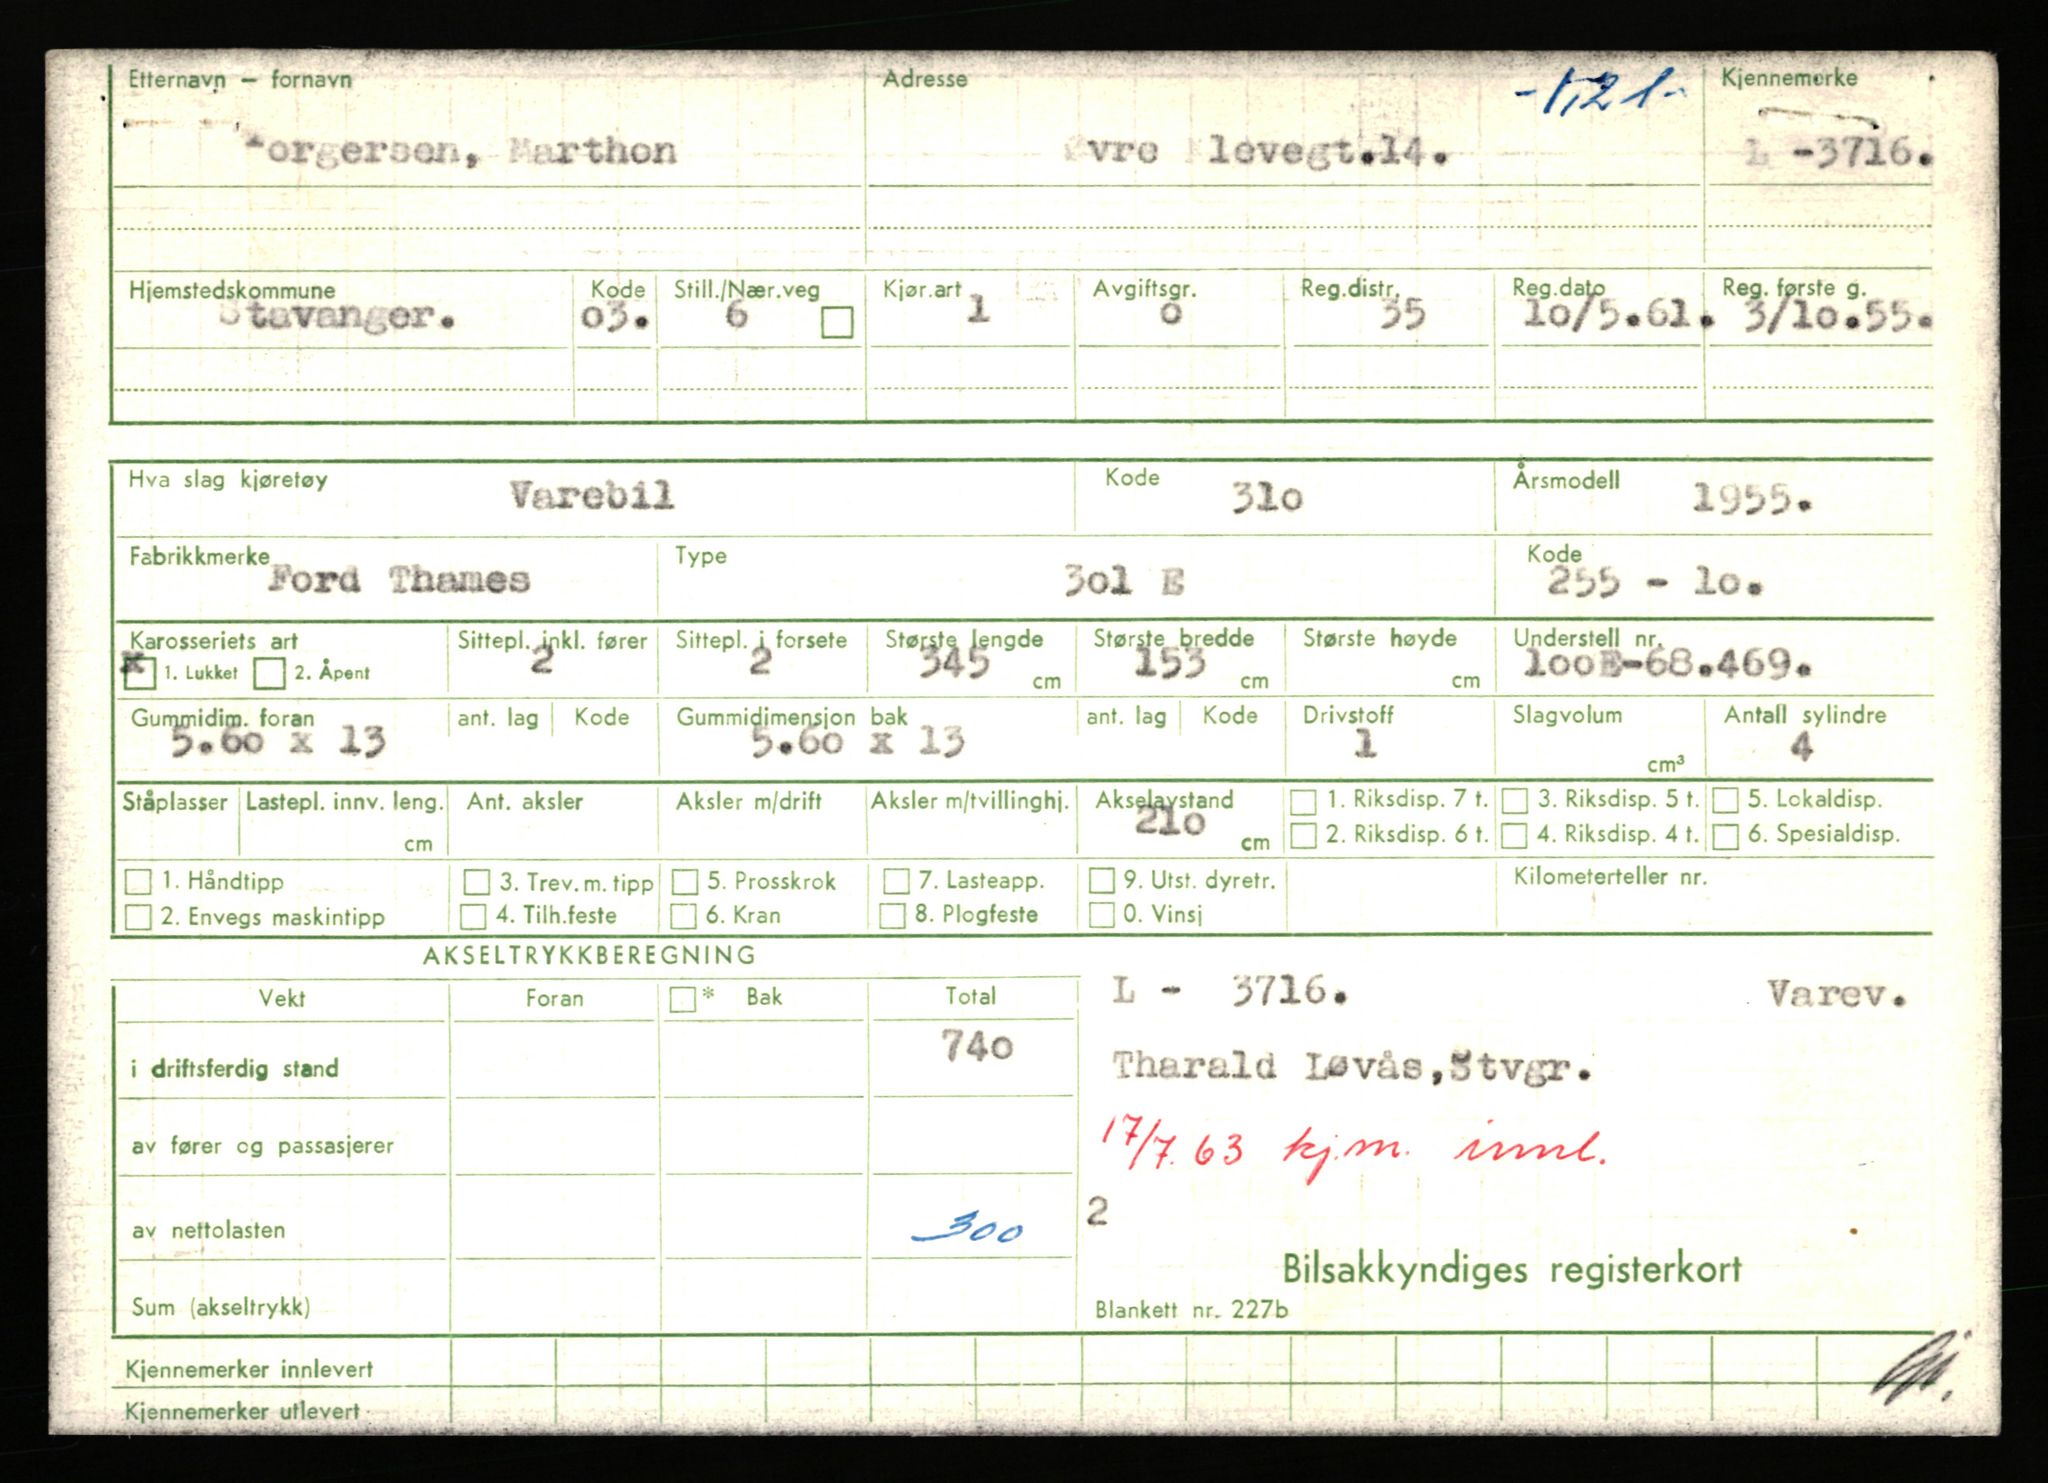 Etternavn – fornavn Adresse -1,2 l- Kjennemerke
Torgersen, Marthon Øvre Klevegt.14. L -3716.
Hjemstedskommune Kode Still./Nær.veg Kjør.art Avgiftsgr. Reg.distr. Reg.dato Reg. første g.
Stavanger. o3. 6 1 o 35 lo/5.61. 3/lo.55.
Hva slag kjøretøy Varebil Kode 31o Årsmodell 1955.
Fabrikkmerke Ford Thames Type 3ol E Kode 255 - lo.
Karosseriets art Sittepl. inkl. fører Sittepl. i forsete Største lengde Største bredde Største høyde Understell nr.
x 1. Lukket 2. Åpent 2 2 345 cm 153 cm cm looE-68.469.
Gummidim. foran ant. lag Kode Gummidimensjon bak ant. lag Kode Drivstoff Slagvolum Antall sylindre
5.60 x 13 5.60 x 13 1 cm³ 4
Ståplasser Lastepl. innv. leng. Ant. aksler Aksler m/drift Aksler m/tvillinghj. Akselavstand 1. Riksdisp. 7 t. 3. Riksdisp. 5 t. 5. Lokaldisp.
cm 21o cm 2. Riksdisp. 6 t. 4. Riksdisp. 4 t. 6. Spesialdisp.
1. Håndtipp 3. Trev. m. tipp 5. Prosskrok 7. Lasteapp. 9. Utst. dyretr. Kilometerteller nr.
2. Envegs maskintipp 4. Tilh.feste 6. Kran 8. Plogfeste 0. Vinsj
AKSELTRYKKBEREGNING
Vekt Foran * Bak Total L - 3716. Varev.
i driftsferdig stand 74o Tharald Løvås,Stvgr.
av fører og passasjerer 17/7.63 kj.m. innl.
av nettolasten 300 2
Bilsakkyndiges registerkort
Sum (akseltrykk) Blankett nr. 227b
Kjennemerker innlevert
Kjennemerker utlevert